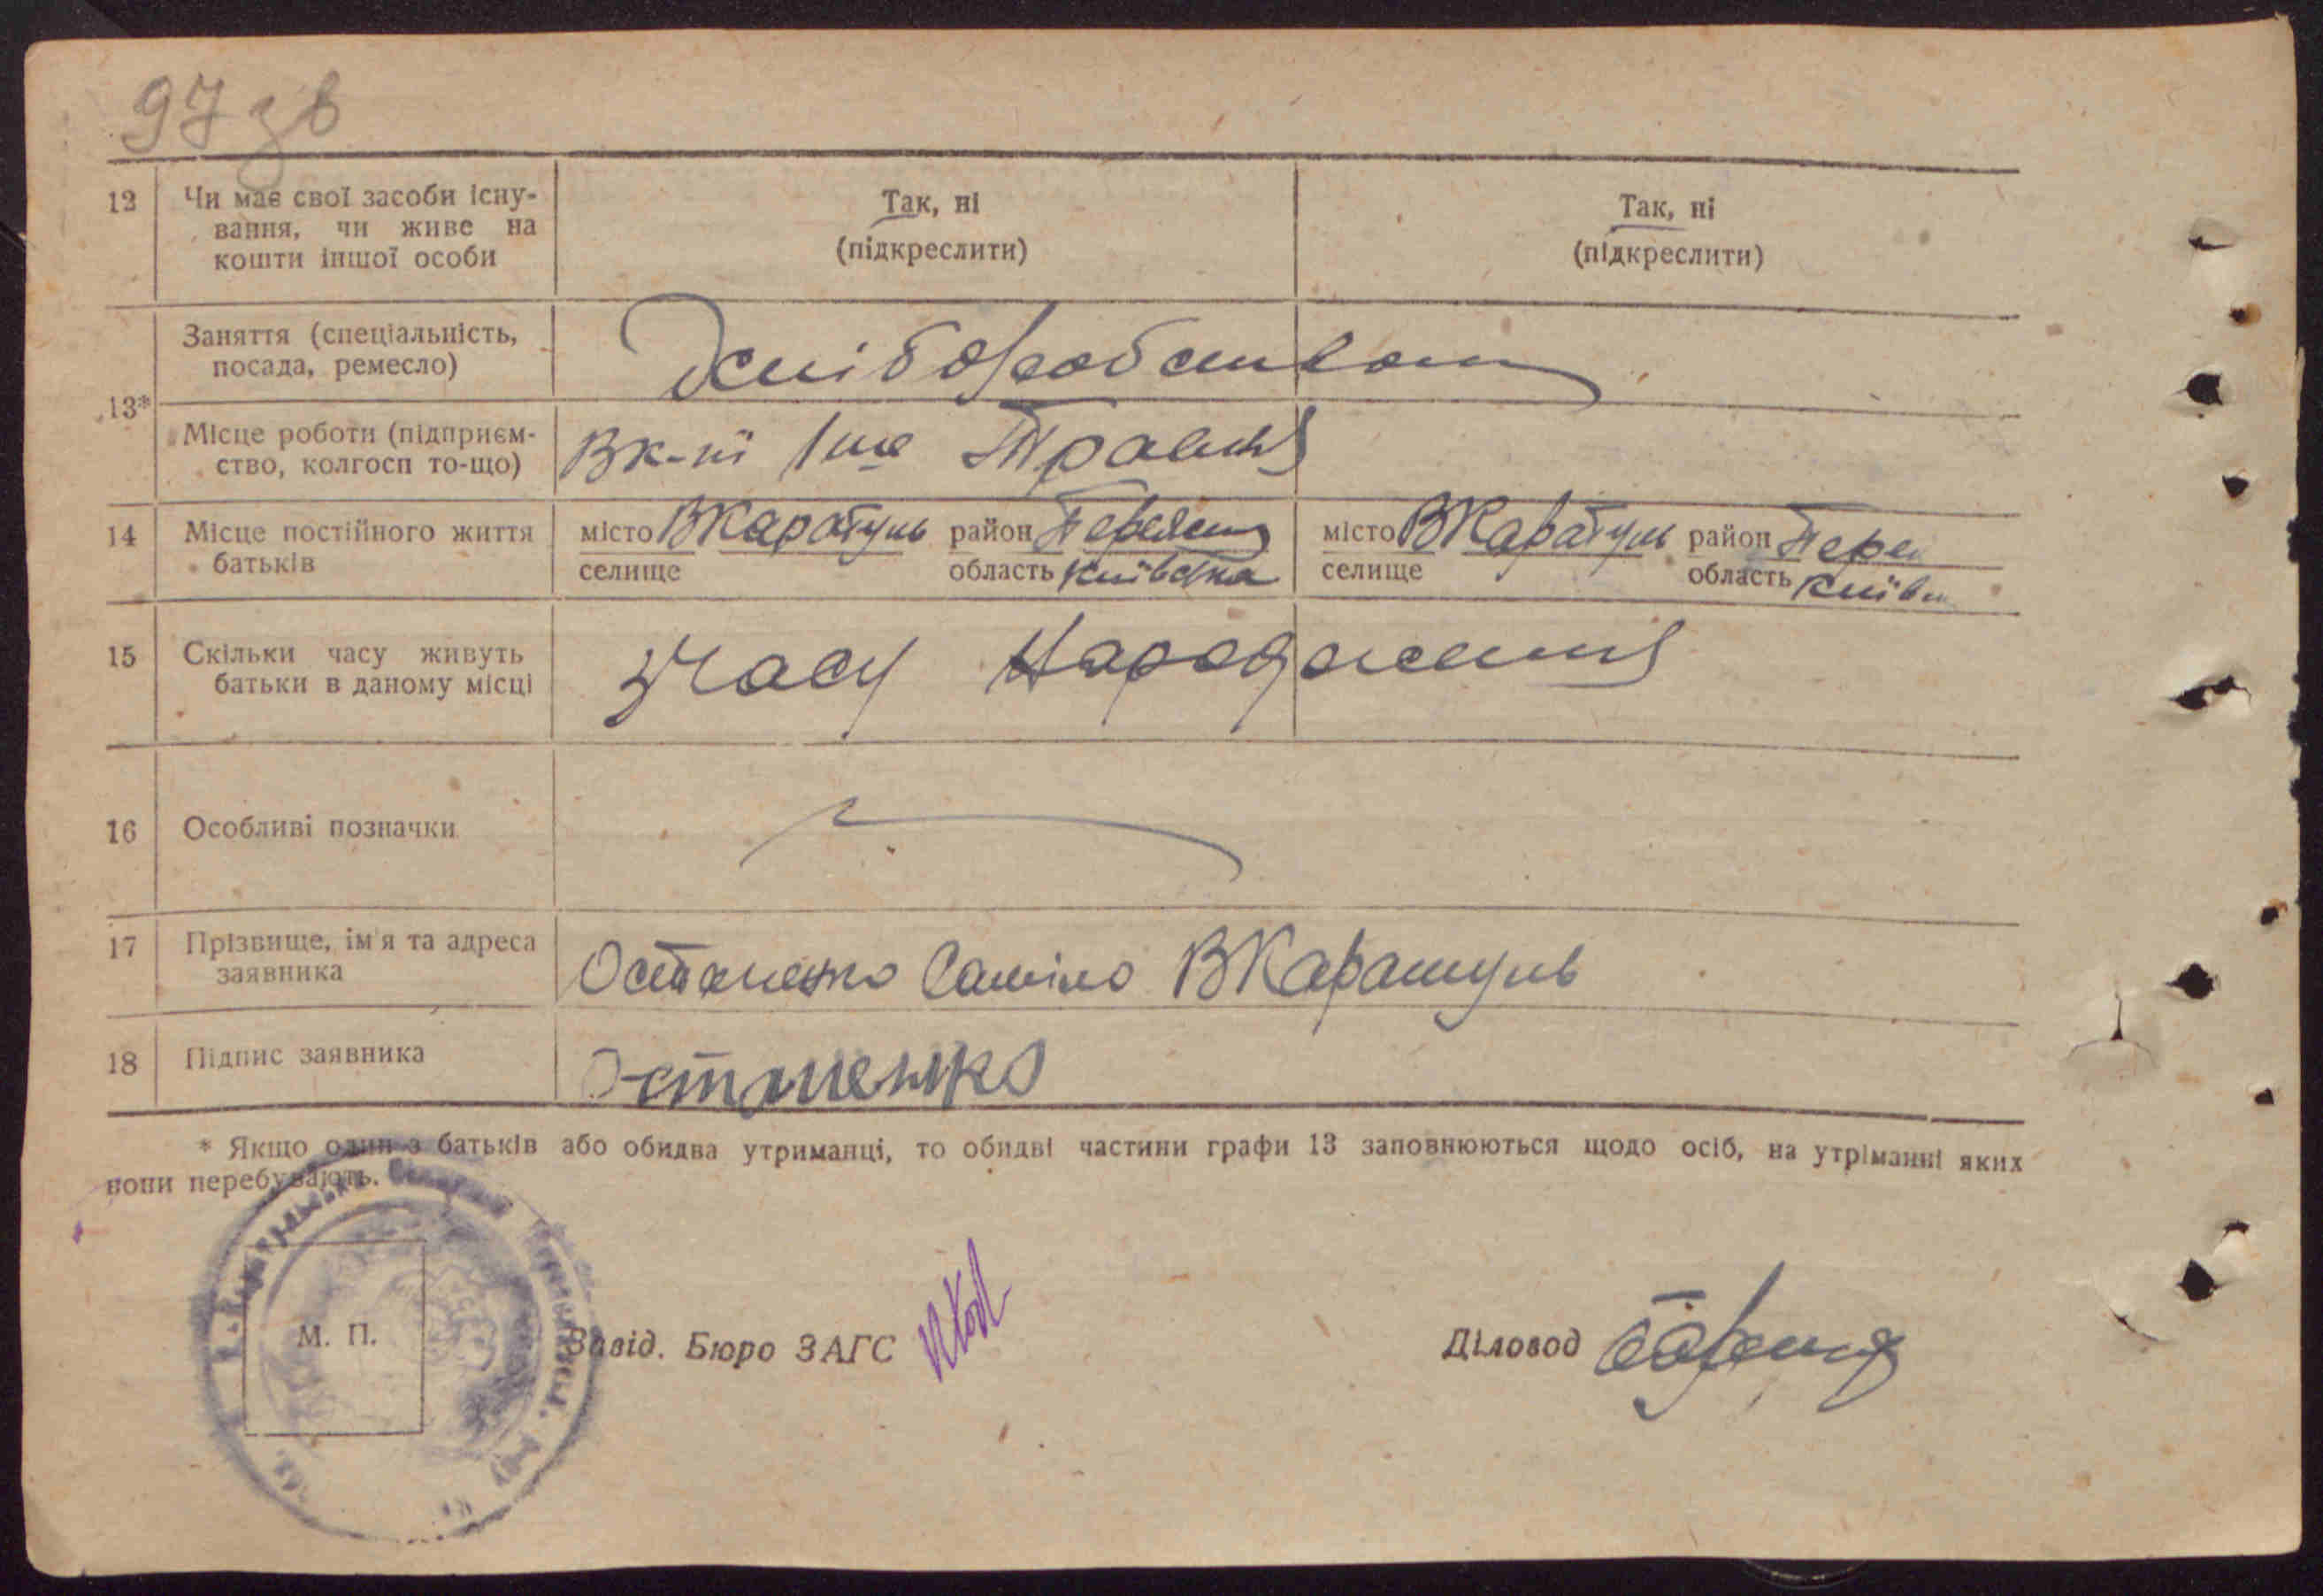 97 зв
12 Чи має свої засоби існу- Так, ні Так, ні
вання, чи живе на (підкреслити) (підкреслити)
кошти іншої особи
13* Заняття (спеціальність, Хліборобством
посада, ремесло)
Місце роботи (підприєм- Вк-пі 1ше Травня
ство, колгосп то-що)
14 Місце постійного життя місто ВКаратуль район Переясл місто ВКаратуль район Перея
батьків селище область Київська селище область Київс
15 Скільки часу живуть зчасу Народження
батьки в даному місці
16 Особливі позначки
17 Прізвище, ім'я та адреса Остапенко Саміло ВКаратуль
заявника
18 Підпис заявника Остапенко
* Якщо один з батьків або обидва утриманці, то обидві частини графи 13 заповнюються щодо осіб, на утріманні яких
вони перебувають.
М. П. Завід. Бюро ЗАГС Діловод